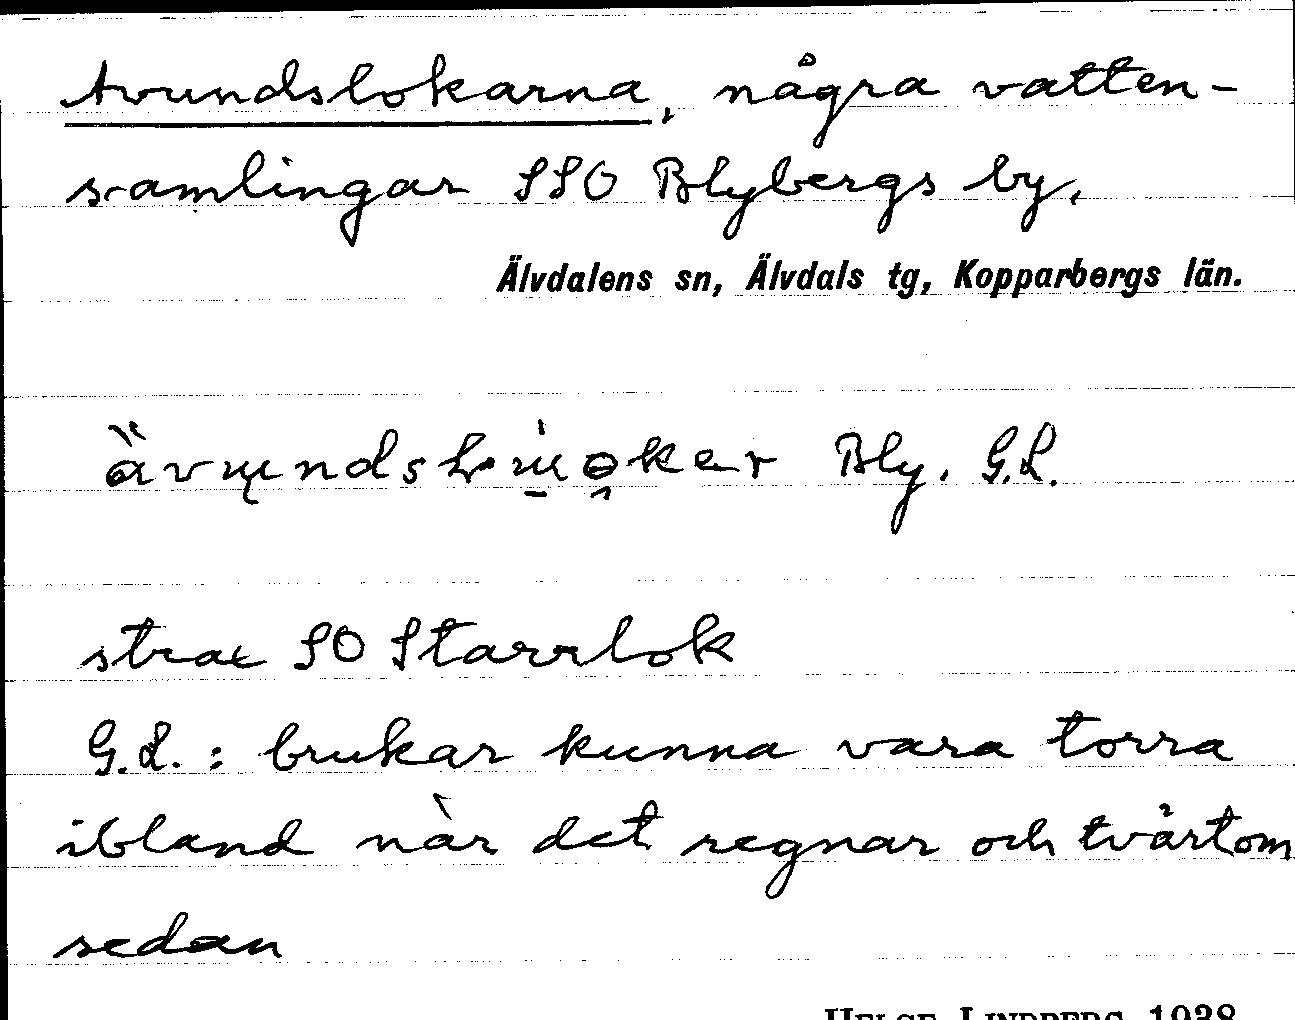 Avundslokarna, några vatten-
samlingar SSO Blybergs by,
Älvdalens sn, Älvdals tg, Kopparbergs län.
Bly. G.L.
strax SO Starrlok
G.L. : brukar kunna vara torra
ibland när det regnar och tvärtom
sedan
HELGE LINDBERG 1938